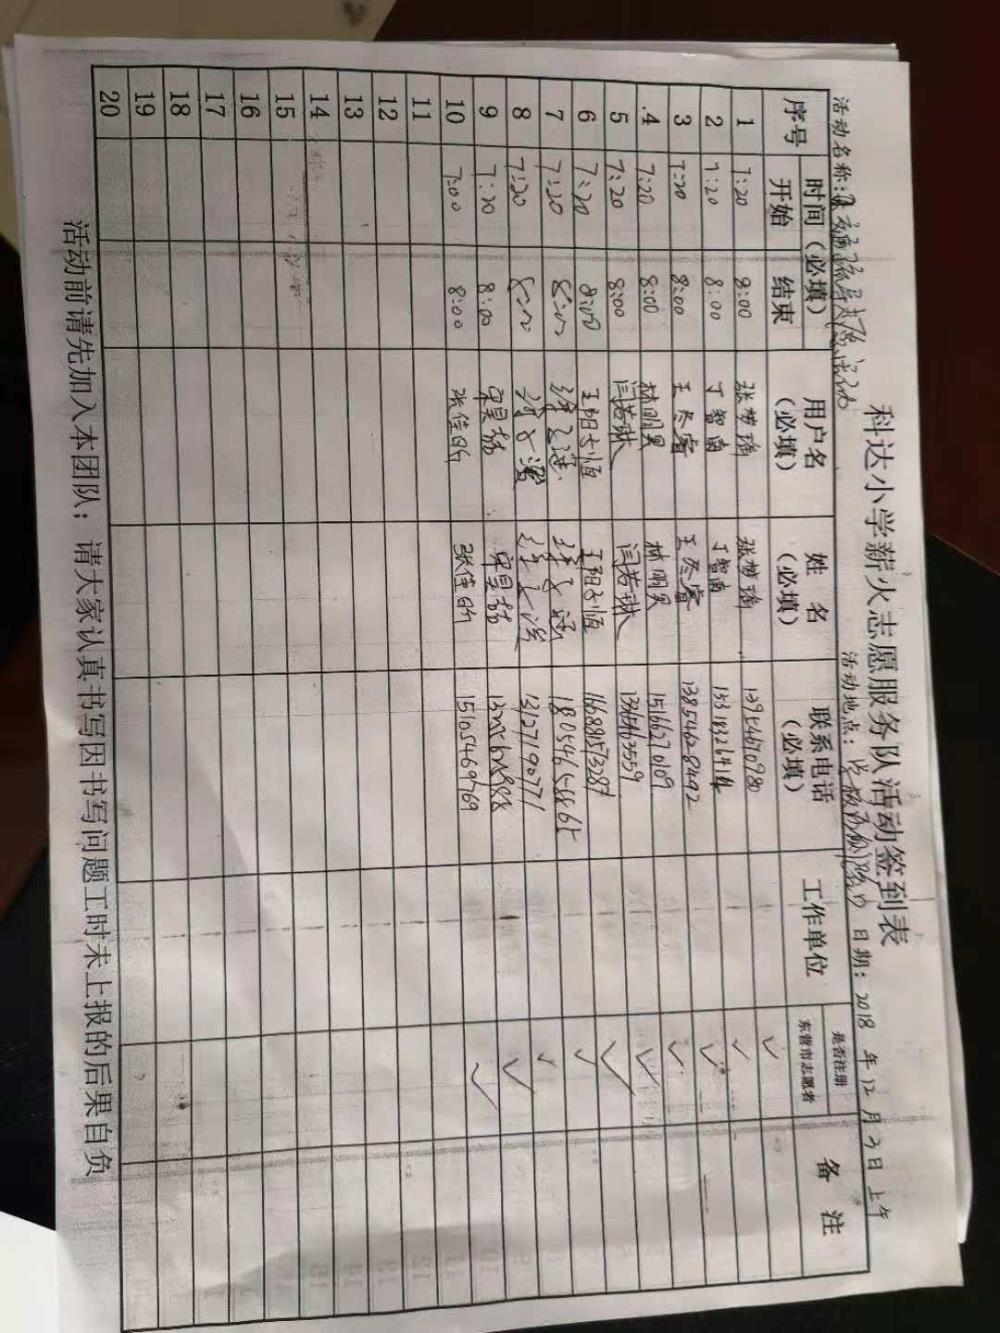 科达小学薪火志愿服务队活动签到表
活动名称: 疏导 活动 活动地点: 学校 路口 日期: 2018 年 12 月 3 日 上午
序号 时间(必填) 开始 结束 用户名(必填) 姓名(必填) 联系电话(必填) 工作单位 是否注册东营市志愿者 备注
1 7:20 8:00 张梦瑶 张梦瑶 13954670980 ✓
2 7:20 8:00 丁智南 丁智南 ✓
3 7:20 8:00 王冬睿 王冬睿 13854628492 ✓
4 7:20 8:00 林明昊 林明昊 15666210109 ✓
5 7:20 8:00 闫若琳 闫若琳 ✓
6 7:20 8:00 王阳子恒 王阳子恒 ✓
7 7:20 8:00 18054658865 ✓
8 7:20 8:00 13127190771 ✓
9 7:20 8:00 宋昊喆 宋昊喆 ✓
10 7:00 8:00 张佳昕 张佳昕 15105469769 ✓
11
12
13
14
15
16
17
18
19
20
活动前请先加入本团队;请大家认真书写因书写问题工时未上报的后果自负